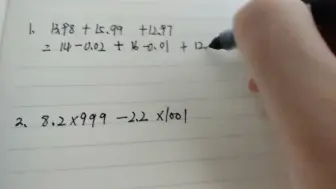 1. 13.98 + 15.99 + 12.97
= 14-0.02 + 16-0.01 + 12
2. 8.2×999 -2.2 ×1001